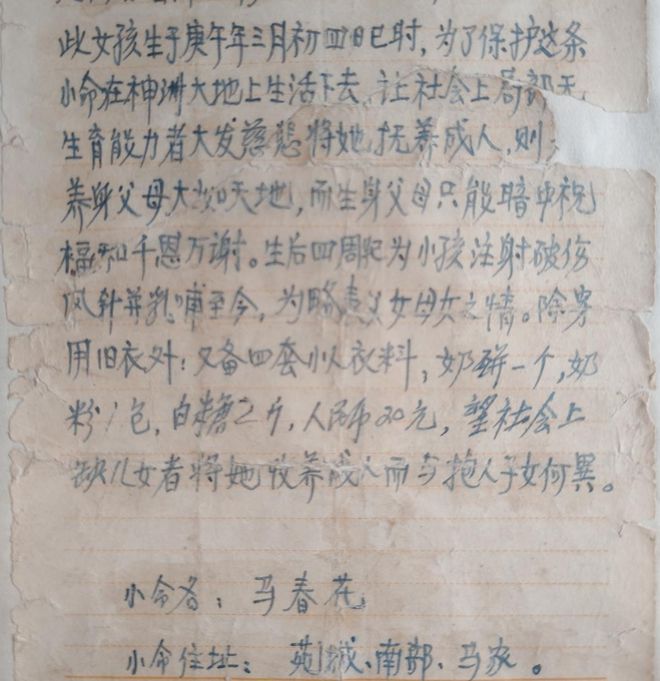 此女孩生于庚午年三月初四日巳时,为了保护这条
小命在神洲大地上生活下去,让社会上局部无
生育能力者大发慈悲将她抚养成人,则
养身父母大如天地,而生身父母只能暗中祝
福和千恩万谢。生后四周已为小孩注射破伤
风针并乳哺至今,为略表父女母女之情。除身
用旧衣外:又备四套小人衣料,奶瓶一个,奶
粉1包,白糖2斤,人民币20元,望社会上
缺儿女者将她收养成人而与抱人子女何異。
小命名:马春花
小命住址:苑城、南部、马家。